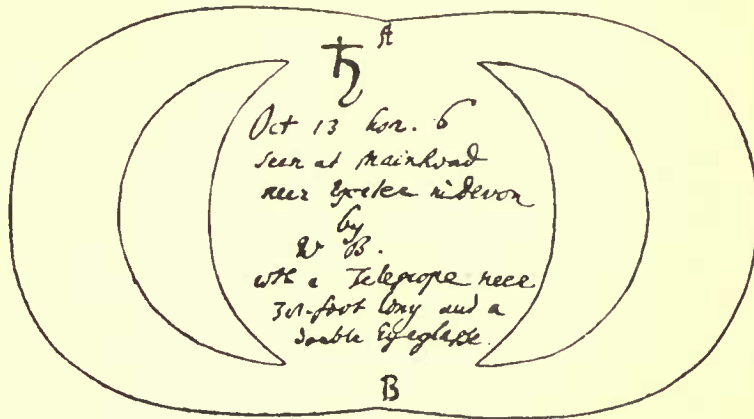 A
♄
Oct 13 hor. 6
seen at Mainhead
neer Exeter in devon
by
W B.
wth a Telescope neer
foot long and a
double Eyeglasse.
B